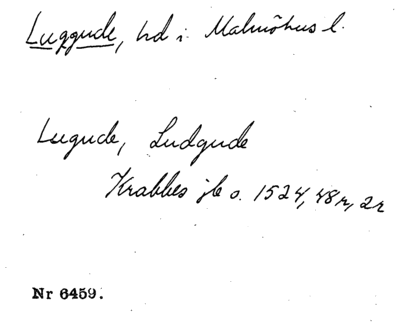 Luggude, hd i Malmöhus l.
Lugude, Ludgude
Krabbes jb o. 1524, 48r, 2r
Nr 6459.